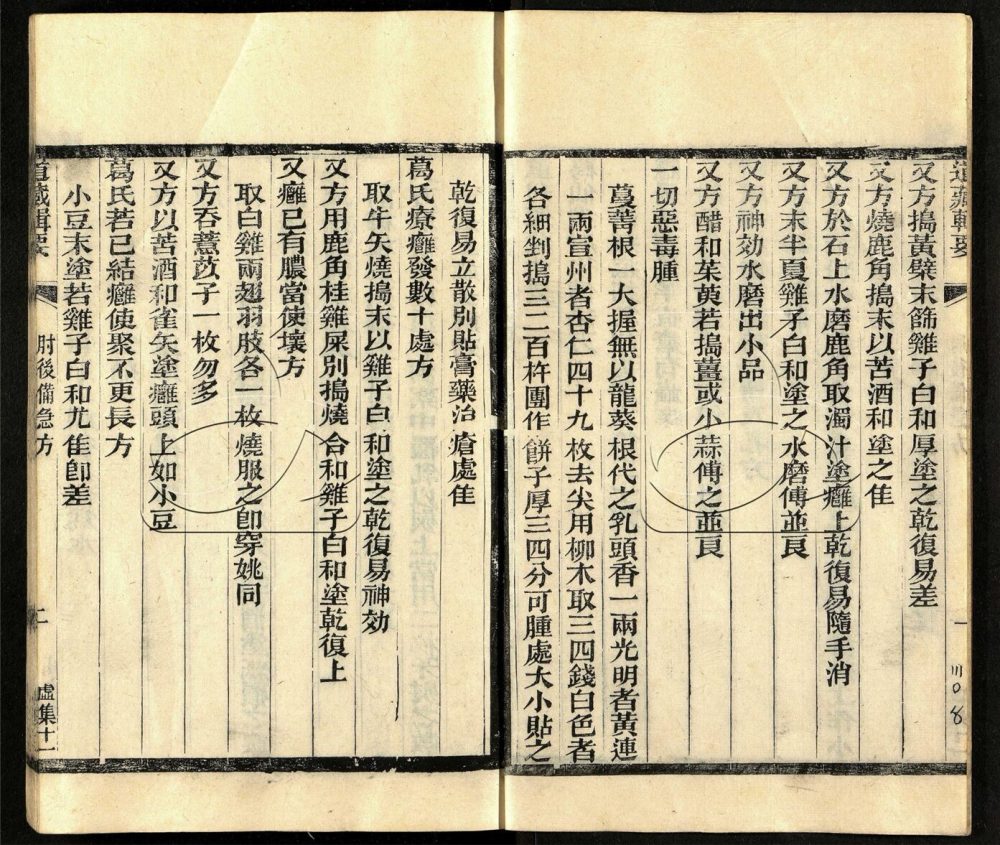 道藏輯要
又方搗黃檗末篩雞子白和厚塗之乾復易差
又方燒鹿角搗末以苦酒和塗之佳
又方於石上水磨鹿角取濁汁塗癰上乾復易隨手消
又方末半夏雞子白和塗之水磨傅並良
又方神効水磨出小品
又方醋和茱萸若搗薑或小蒜傅之並良
一切惡毒腫
蔓菁根一大握無以龍葵根代之乳頭香一兩光明者黃連
一兩宣州者杏仁四十九枚去尖用柳木取三四錢白色者
各細剉搗三二百杵團作餅子厚三四分可腫處大小貼之
乾復易立散別貼膏藥治瘡處佳
葛氏療癰發數十處方
取牛矢燒搗末以雞子白和塗之乾復易神効
又方用鹿角桂雞屎別搗燒合和雞子白和塗乾復上
又癰已有膿當使壞方
取白雞兩翅羽肢各一枚燒服之卽穿姚同
又方吞薏苡子一枚勿多
又方以苦酒和雀矢塗癰頭上如小豆
葛氏若已結癰使聚不更長方
小豆末塗若雞子白和尤佳卽差
道藏輯要 肘後備急方 二 虛集十一
一
308